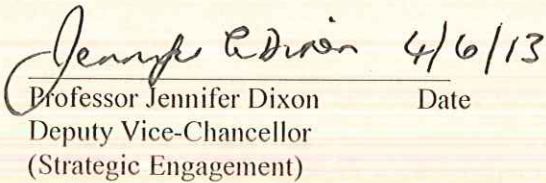 Jennifer G Dixon 4/6/13
Professor Jennifer Dixon Date
Deputy Vice-Chancellor
(Strategic Engagement)